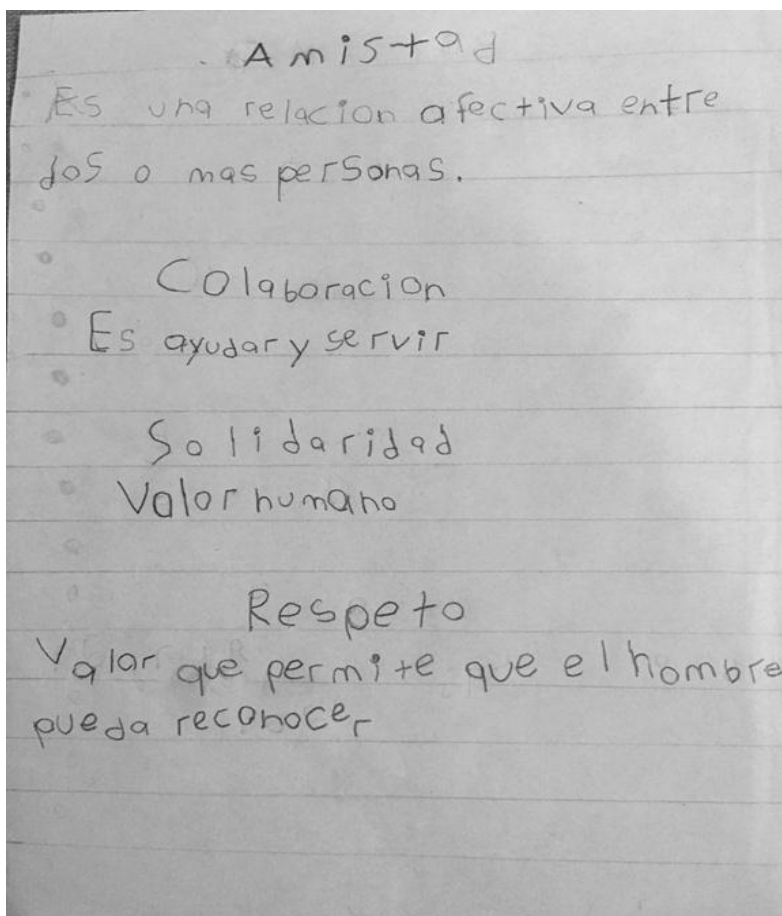 Amistad
Es una relacion afectiva entre
dos o mas personas.
Colaboracion
Es ayudar y servir
Solidaridad
Valor humano
Respeto
Valor que permite que el hombre
pueda reconocer